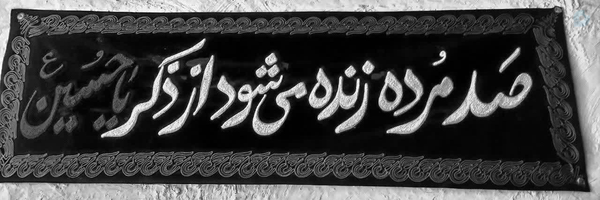 صد مُرده زنده می‌شود از ذکر یا حُسین ع